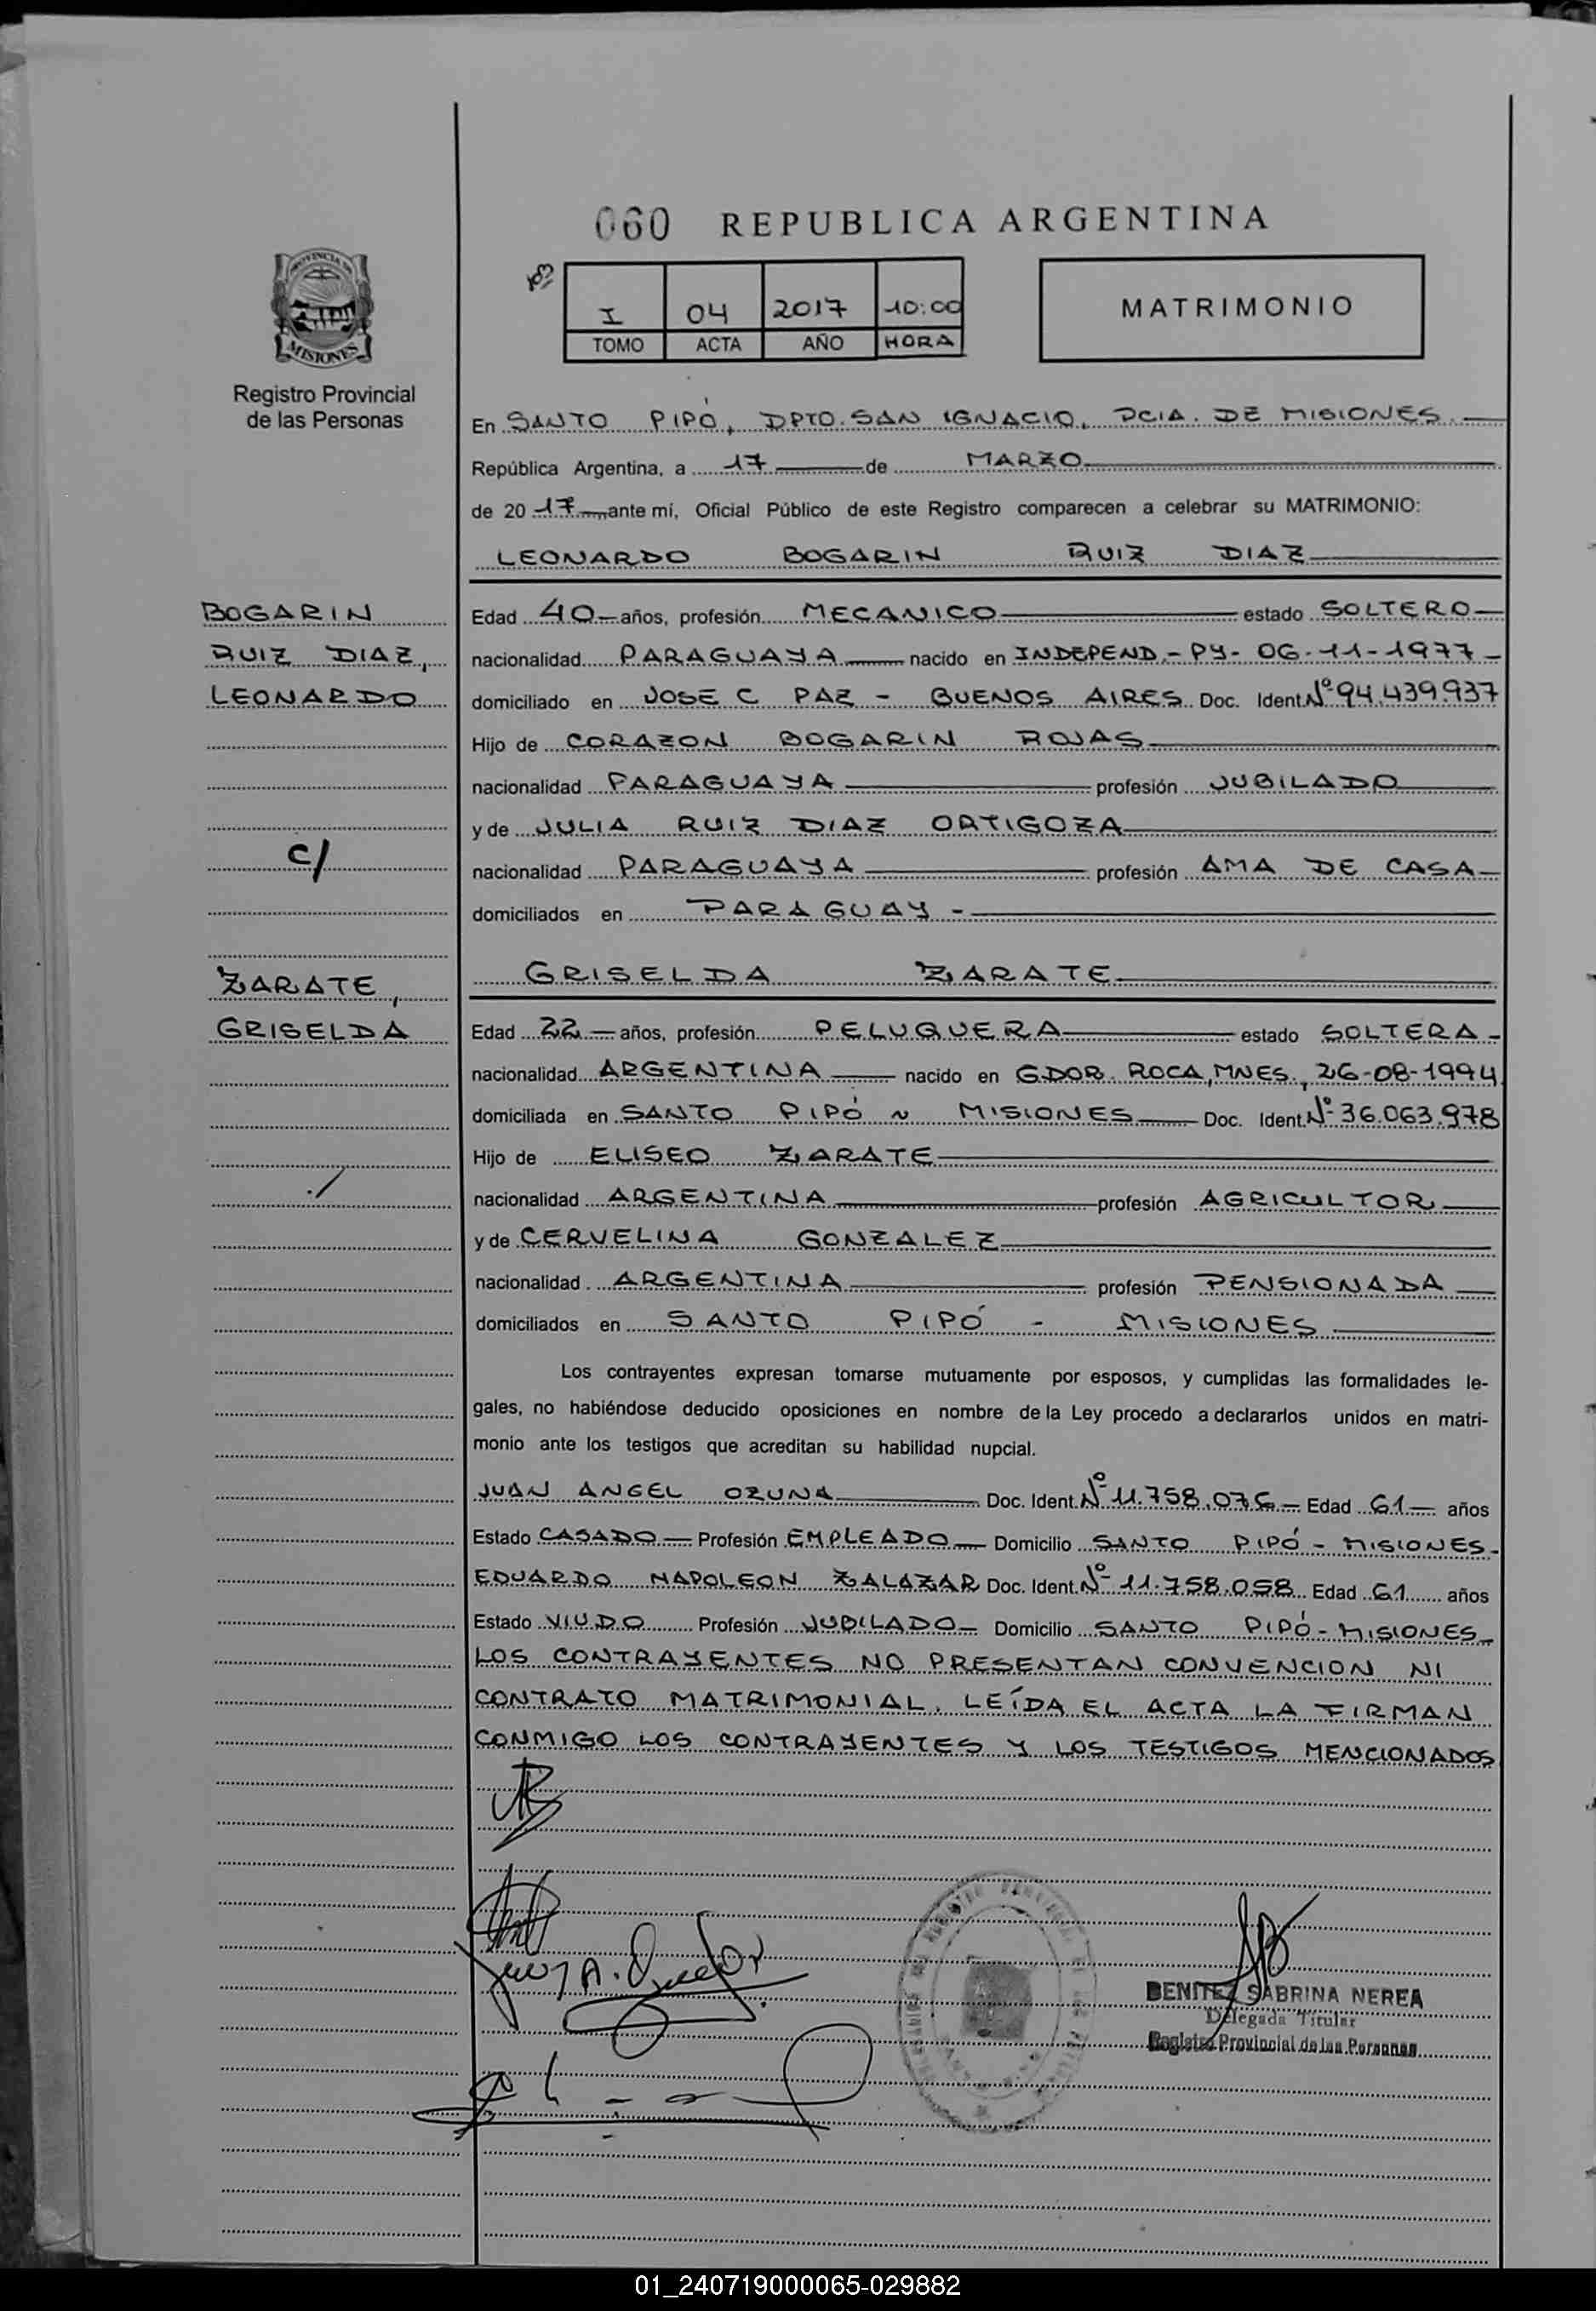 060 REPUBLICA ARGENTINA
I 04 2017 10:00
TOMO ACTA AÑO HORA
MATRIMONIO
PROVINCIA DE
MISIONES
Registro Provincial
de las Personas
En SANTO PIPÓ, DPTO. SAN IGNACIO, PCIA. DE MISIONES.
República Argentina, a 17 de MARZO
de 20 17 ante mí, Oficial Público de este Registro comparecen a celebrar su MATRIMONIO:
LEONARDO BOGARIN RUIZ DIAZ
BOGARIN
RUIZ DIAZ,
LEONARDO
C/
ZARATE,
GRISELDA
Edad 40 años, profesión MECANICO estado SOLTERO
nacionalidad PARAGUAYA nacido en INDEPEND.- PY- 06-11-1977-
domiciliado en JOSE C PAZ - BUENOS AIRES Doc. Ident. Nº 94.439.937
Hijo de CORAZON BOGARIN ROJAS
nacionalidad PARAGUAYA profesión JUBILADO
y de JULIA RUIZ DIAZ ORTIGOZA
nacionalidad PARAGUAYA profesión AMA DE CASA
domiciliados en PARAGUAY -
GRISELDA ZARATE
Edad 22 años, profesión PELUQUERA estado SOLTERA
nacionalidad ARGENTINA nacido en GDOR. ROCA, MNES., 26-08-1994
domiciliada en SANTO PIPÓ ~ MISIONES Doc. Ident. Nº 36.063.978
Hijo de ELISEO ZARATE
nacionalidad ARGENTINA profesión AGRICULTOR
y de CERVELINA GONZALEZ
nacionalidad ARGENTINA profesión PENSIONADA
domiciliados en SANTO PIPÓ - MISIONES
Los contrayentes expresan tomarse mutuamente por esposos, y cumplidas las formalidades le-
gales, no habiéndose deducido oposiciones en nombre de la Ley procedo a declararlos unidos en matri-
monio ante los testigos que acreditan su habilidad nupcial.
JUAN ANGEL OZUNA Doc. Ident. Nº 11.758.076 Edad 61 años
Estado CASADO Profesión EMPLEADO Domicilio SANTO PIPÓ - MISIONES-
EDUARDO NAPOLEON ZALAZAR Doc. Ident. Nº 11.758.058 Edad 61 años
Estado VIUDO Profesión JUBILADO Domicilio SANTO PIPÓ - MISIONES
LOS CONTRAYENTES NO PRESENTAN CONVENCION NI
CONTRATO MATRIMONIAL. LEÍDA EL ACTA LA FIRMAN
CONMIGO LOS CONTRAYENTES Y LOS TESTIGOS MENCIONADOS
BENITEZ SABRINA NEREA
Delegada Titular
Registro Provincial de las Personas
01_240719000065-029882